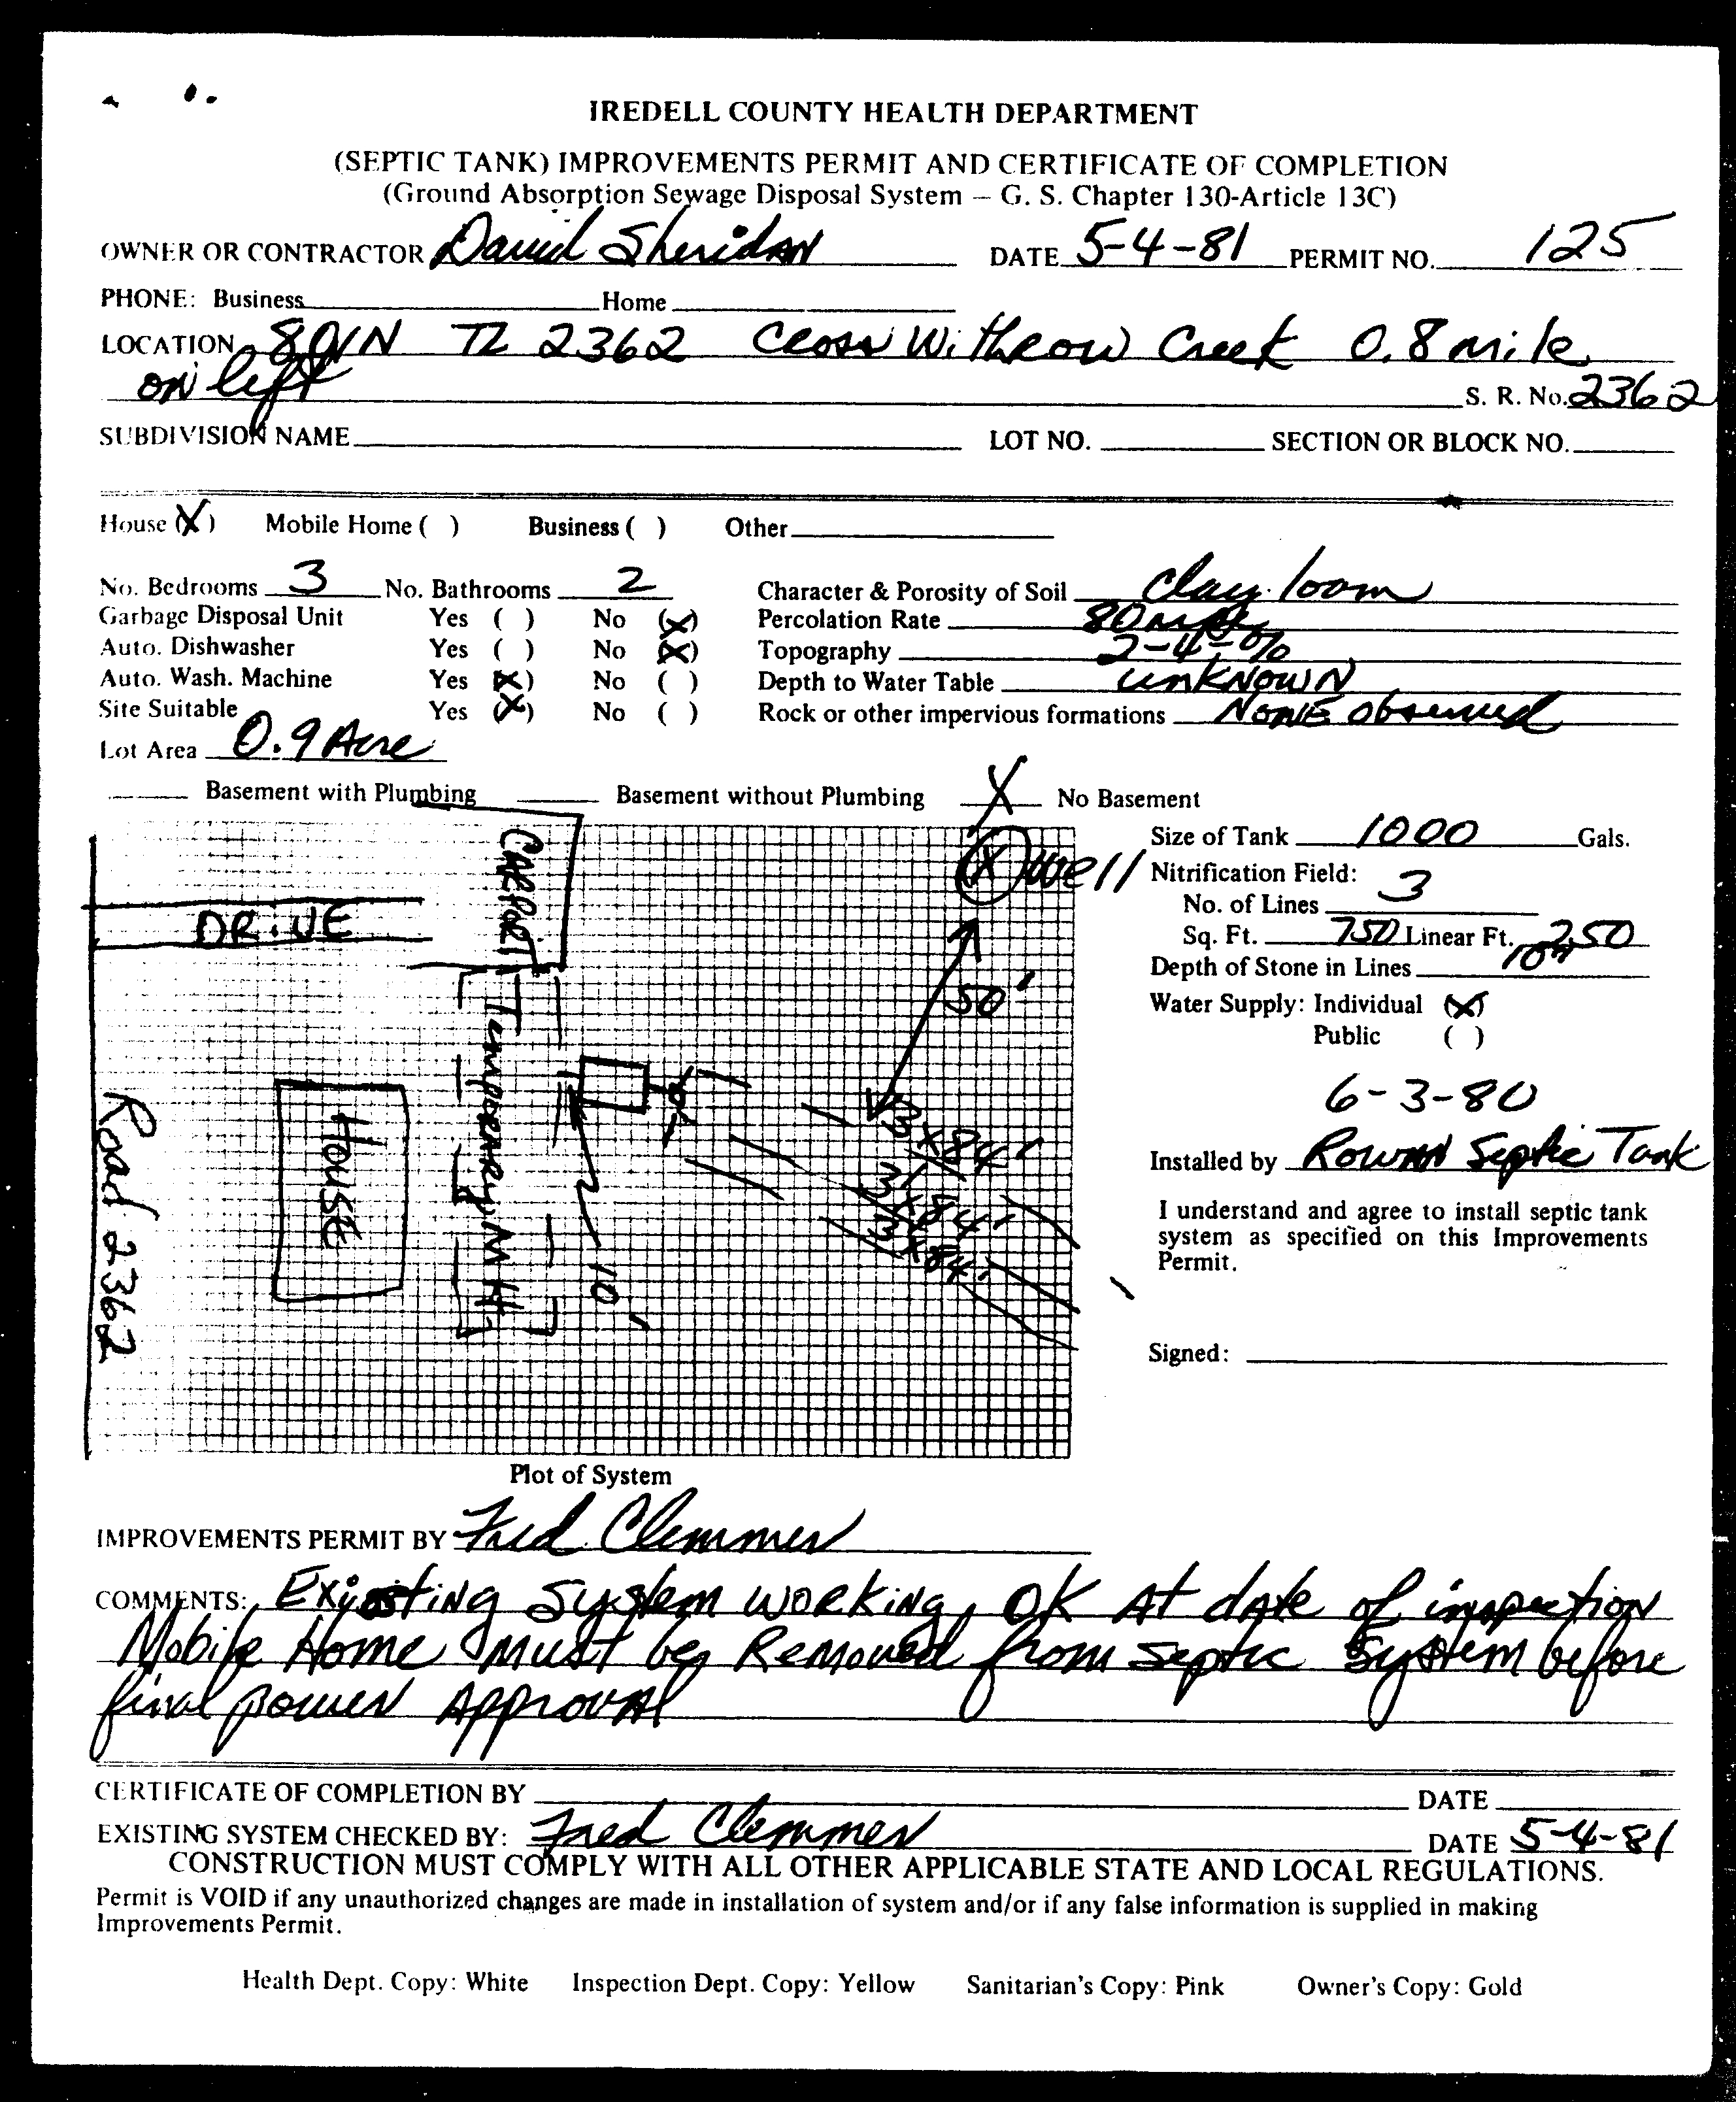 IREDELL COUNTY HEALTH DEPARTMENT
(SEPTIC TANK) IMPROVEMENTS PERMIT AND CERTIFICATE OF COMPLETION
(Ground Absorption Sewage Disposal System – G. S. Chapter 130-Article 13C)
OWNER OR CONTRACTOR David Sheridan DATE 5-4-81 PERMIT NO. 125
PHONE: Business Home
LOCATION 801N TL 2362 Cross Withrow Creek 0.8 mile
on left S. R. No. 2362
SUBDIVISION NAME LOT NO. SECTION OR BLOCK NO.
House (X) Mobile Home ( ) Business ( ) Other
No. Bedrooms 3 No. Bathrooms 2 Character & Porosity of Soil Clay loom
Garbage Disposal Unit Yes ( ) No (X) Percolation Rate 80
Auto. Dishwasher Yes ( ) No (X) Topography 2-4-%
Auto. Wash. Machine Yes (X) No ( ) Depth to Water Table unKNOWN
Site Suitable Yes (X) No ( ) Rock or other impervious formations NONE observed
Lot Area 0.9 Acre
Basement with Plumbing Basement without Plumbing X No Basement
Size of Tank 1000 Gals.
Nitrification Field:
No. of Lines 3
Sq. Ft. 750 Linear Ft. 250
Depth of Stone in Lines 10"
Water Supply: Individual (X)
Public ( )
6-3-80
Installed by Rowan Septic Tank
I understand and agree to install septic tank
system as specified on this Improvements
Permit.
Signed:
CARPORT
(X) well
DRIVE
50'
Temporary MH
HOUSE
Road 2362
10'
3 x 84'
3 x 84'
3 x 84'
Plot of System
IMPROVEMENTS PERMIT BY Fred Clemmer
COMMENTS: Existing System working OK At date of inspection
Mobile Home Must be Removed from septic System before
final power Approval
CERTIFICATE OF COMPLETION BY DATE
EXISTING SYSTEM CHECKED BY: Fred Clemmer DATE 5-4-81
CONSTRUCTION MUST COMPLY WITH ALL OTHER APPLICABLE STATE AND LOCAL REGULATIONS.
Permit is VOID if any unauthorized changes are made in installation of system and/or if any false information is supplied in making
Improvements Permit.
Health Dept. Copy: White Inspection Dept. Copy: Yellow Sanitarian's Copy: Pink Owner's Copy: Gold